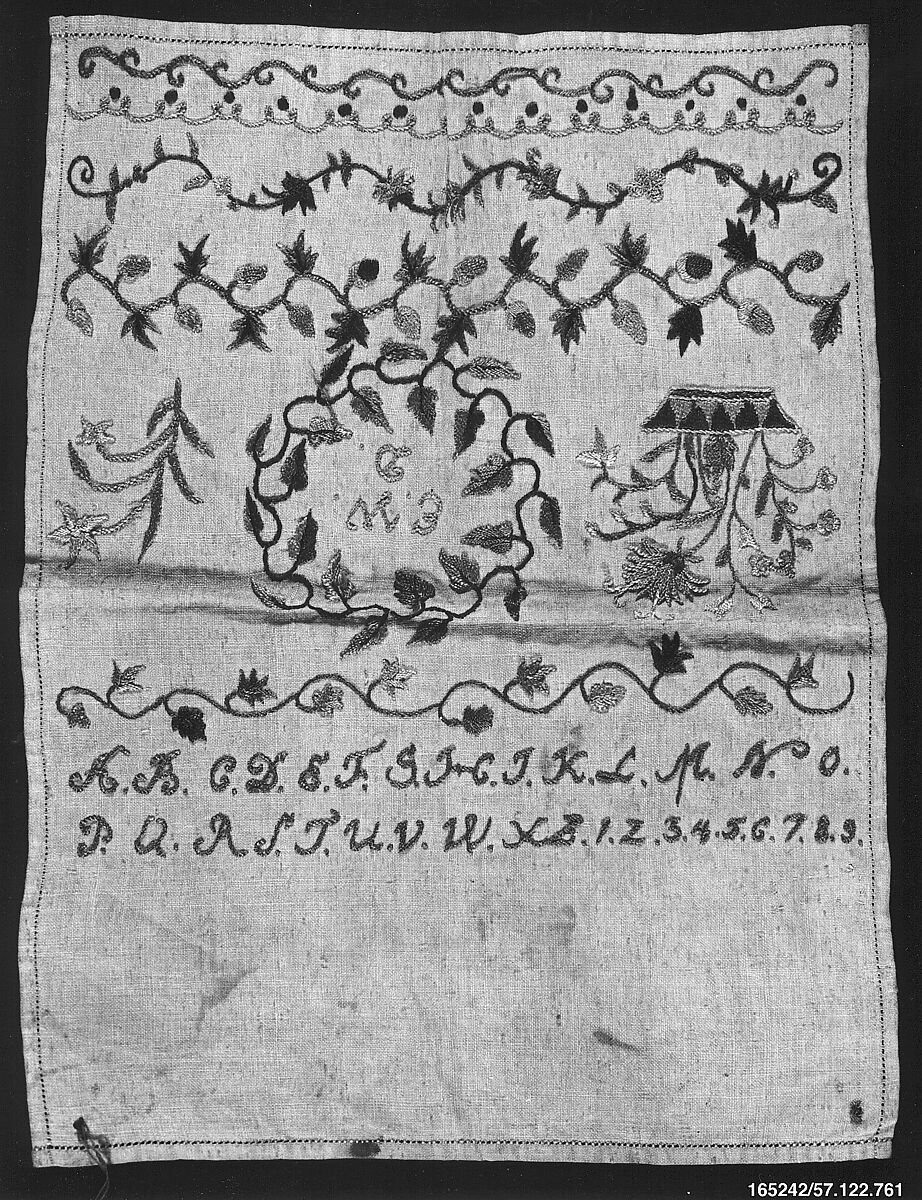 A. B. C. D. E. F. G. H. I. K. L. M. N. O.
P. Q. R S. T. U. V. W. X Z. 1. 2. 3. 4. 5. 6. 7. 8. 9.
165242/57.122.761